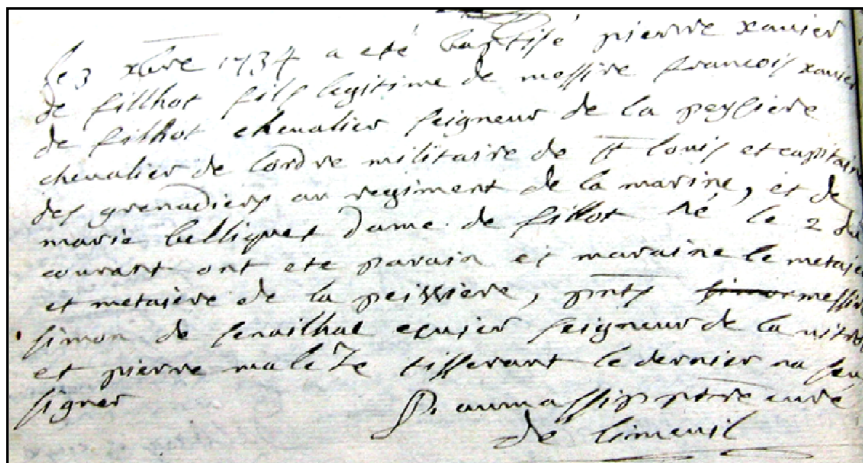 le 3 xbre 1734 a eté baptisé pierre xavier
de fillhot fils legitime de messire francois xavier
de filhot chevalier seigneur de la peyssiere
chevalier de lordre militaire de st louis et capitaine
des grenadiers au regiment de la marine, et de
marie belliquet dame de fillot né le 2 du
courant ont eté parain et maraine le metaie
et metaiere de la peissiere, pnts messi
simon de senailhac equier seigneur de la vitro
et pierre maleze tisserant le dernier na seu
signer ptre curé
de limeuil